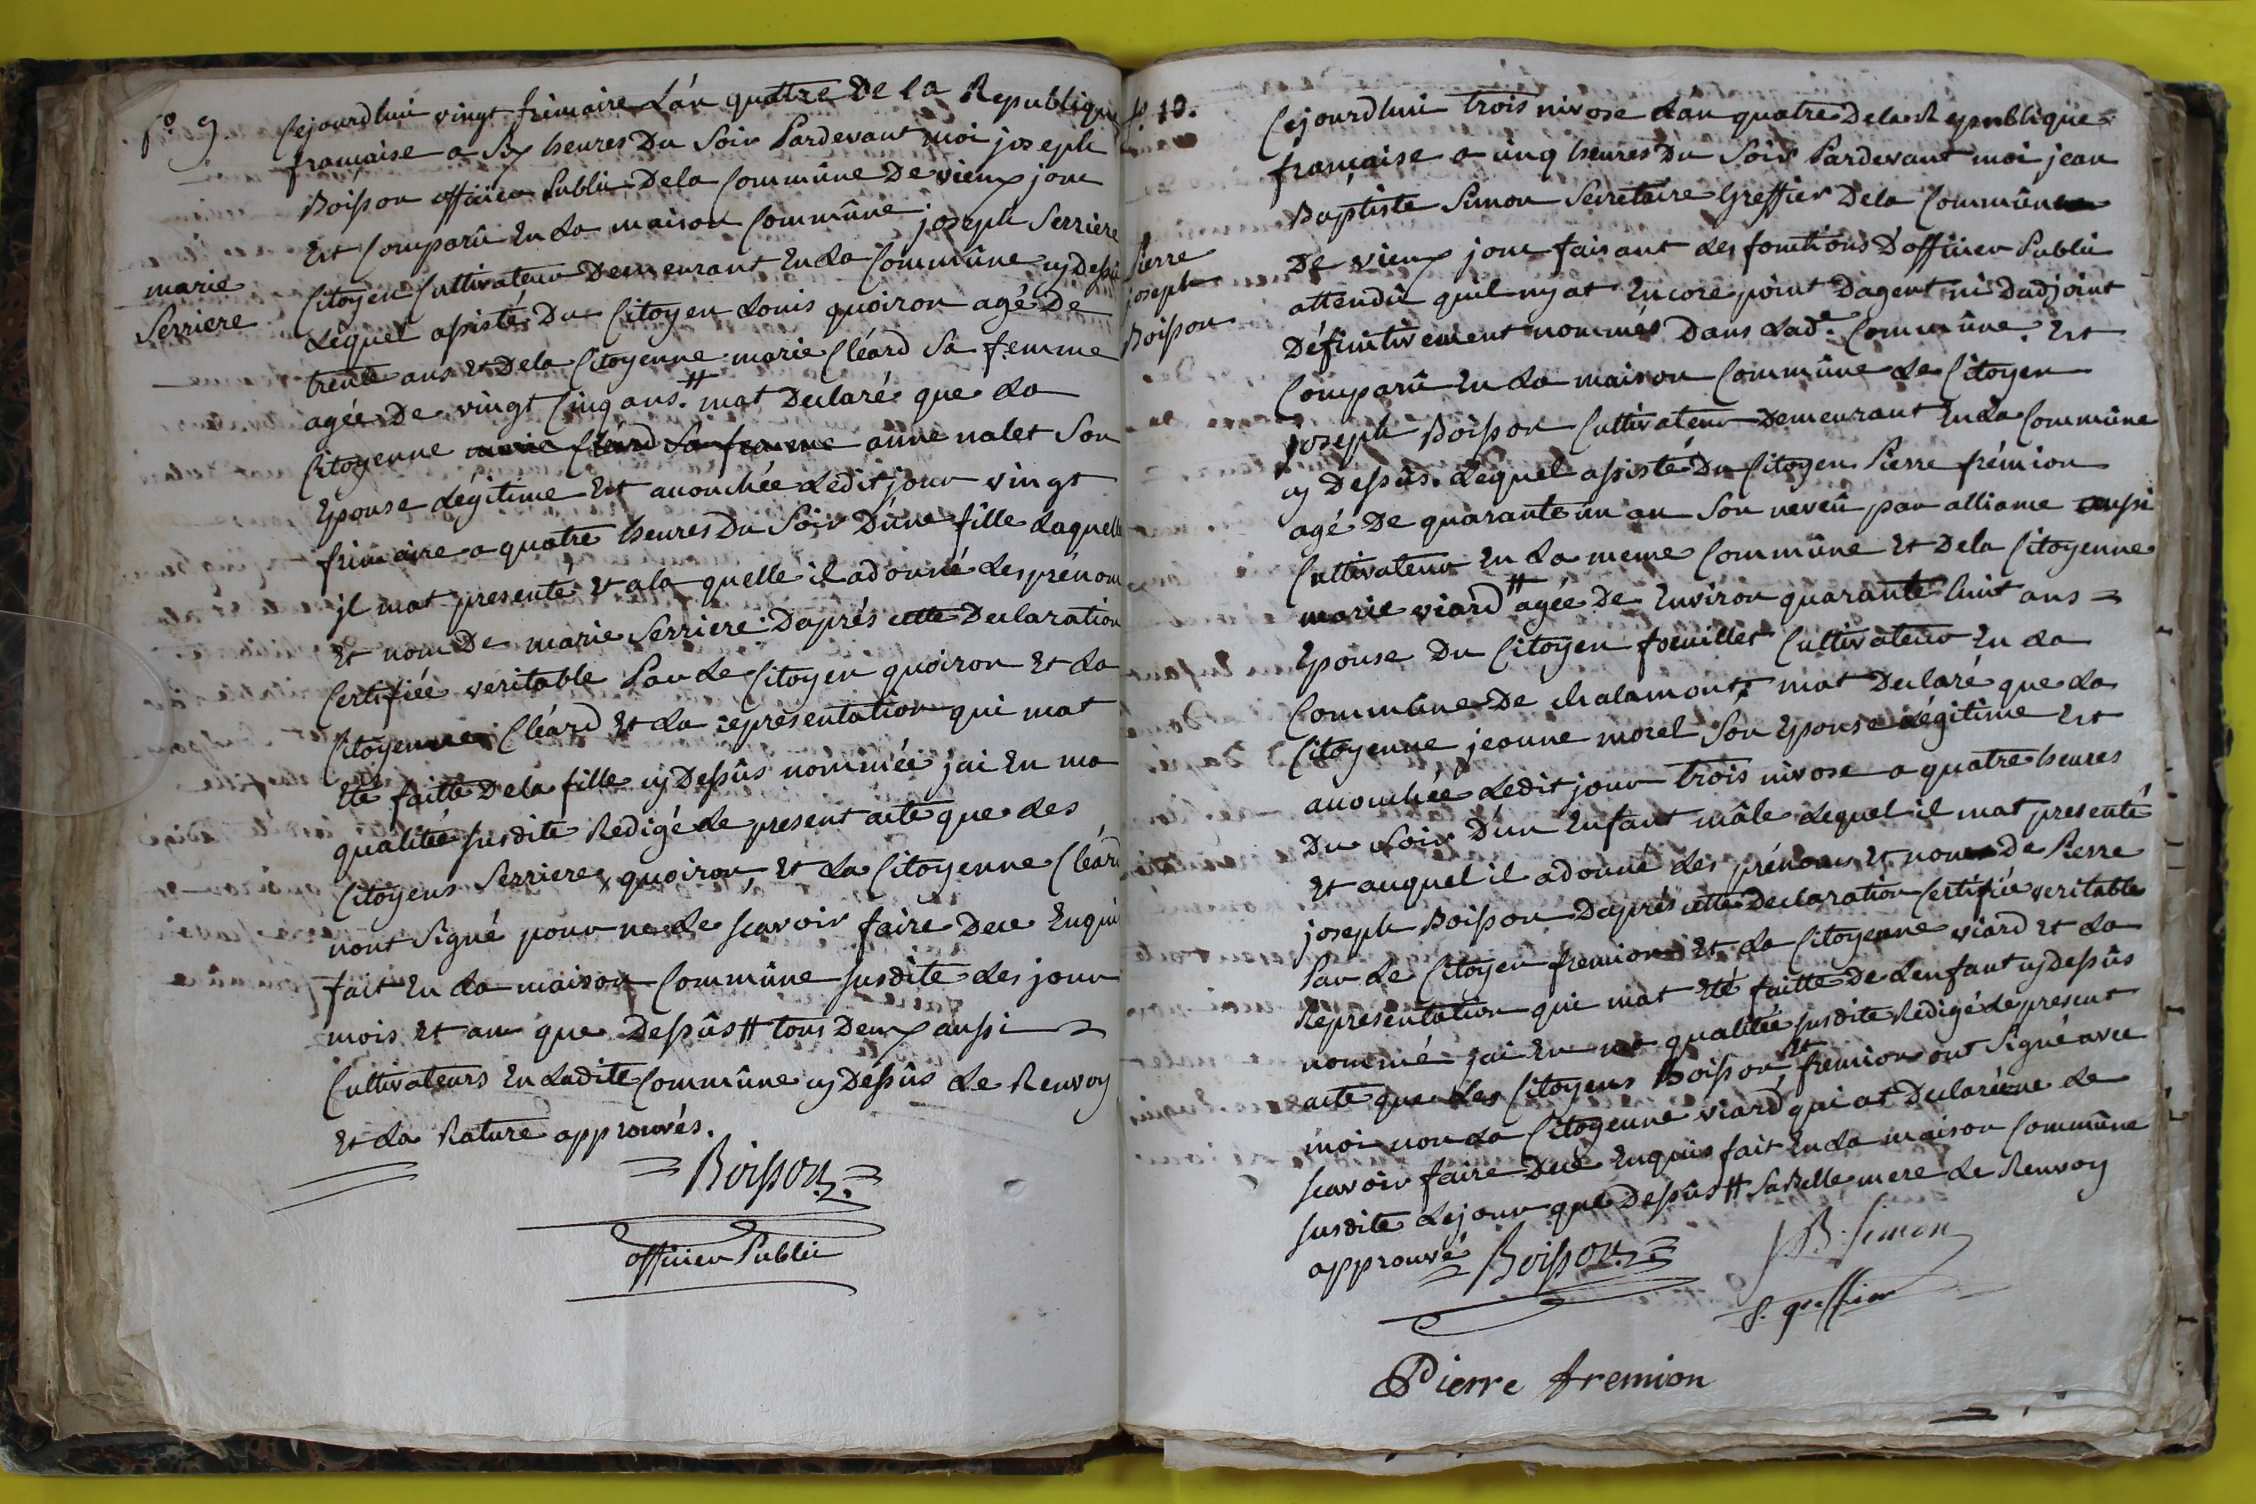 fo. 9
marie
Serriere
Cejourdhui vingt frimaire L'an quatre De la Republique
française a Six heures Du Soir Pardevant moi joseph
Boisson officier Public Dela Commûne De vieux jouc
Est Comparû En La maison Commûne joseph Serriere
Citoyen Cultivateur Demeurant En La Commûne cy Dessus
Lequel assisté Du Citoyen Louis quoiron agé De
trente ans Et Dela Citoyenne marie Cléard Sa femme
agée De vingt Cinq ans. # mat Declaré que La
Citoyenne marie Cléard Sa femme anne nalet Son
Epouse Légitime Est accouchée Ledit jour vingt
frimaire a quatre heures Du Soir D'une fille Laquelle
il mat presenté & a la quelle il a donné Les prénom
Et nom De marie Serriere. Daprés cette Declaration
Certifiée veritable Par Le Citoyen quoiron Et La
Citoyenne Cléard Et La representation qui mat
Eté faitte De la fille cy Dessûs nommée jai En ma
qualitée susdite Redigé Le present acte que Les
Citoyens Serriere, quoiron, Et La Citoyenne Cléard
nont Signé pour ne Le scavoir faire Dece Enquis
fait En La maison Commûne susdite Les jour
mois Et an que Dessûs # tous Deux aussi
Cultivateurs En Ladite Commûne cy Déssûs Le Renvoy
Et La Rature approuvés.
Boisson
officier Public
fo. 10.
Pierre
joseph
Boisson
Cejourdhui trois nivose L'an quatre Dela Republique
française a cinq heures Du Soir Pardevant moi jean
Baptiste Simon Secretaire Greffier Dela Commûne
De vieux jouc faisant Les fonctions D'officier Public
attendû quil ny at Encore point Dagent ni Dadjoint
Définitivement nommés Dans Lade. Commûne. Est
Comparû En La maison Commûne Le Citoyen
joseph Boisson Cultivateur Demeurant En La Commûne
cy Dessûs. Lequel assisté Du Citoyen Pierre frémion
agé De quarante un an Son neveû par alliance aussi
Cultivateur En La meme Commûne Et Dela Citoyenne
marie viard # agée De Environ quarante huit ans
Epouse Du Citoyen fœuillet Cultivateur En La
Commûne De chalamont, mat Declaré que La
Citoyenne jeanne morel Son Epouse Légitime Est
accouchée Ledit jour trois nivose a quatre heures
Du Soir D'un Enfant mâle Lequel il mat presenté
Et auquel il a donné Les prénoms Et nom De Pierre
joseph Boisson Daprés cette Declaration Certifiée veritable
Par Le Citoyen fremion Et La Citoyenne viard Et La
Representation qui mat Eté faitte De Lenfant cy Dessûs
nommé jai En ma qualitée susdite Redigé Le present
acte que Les Citoyens Boisson Et fremion ont Signé avec
moi non La Citoyenne viard qui at Declaré ne Le
scavoir faire Dece Enquis fait En La maison Commûne
susdite Le jour que Dessûs # Sa Belle mere Le Renvoy
approuvé
Boisson
J B. Simon
S. greffier
Pierre fremion